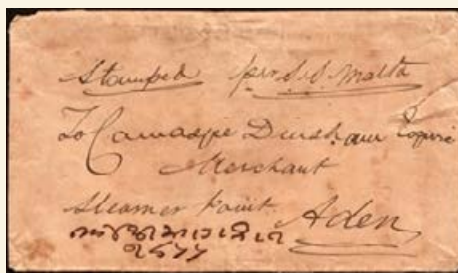 Stamped per S.S. Malta
To Cawasjee Dinshaw Esquire
Merchant
Steamer Point
Aden